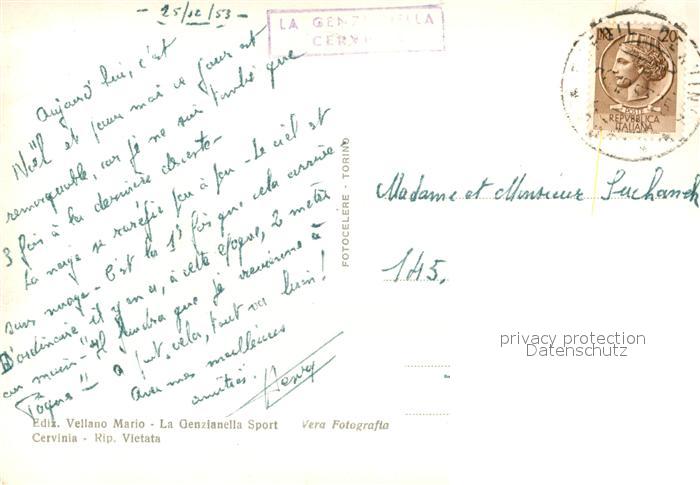 - 25/12/53 -
LA GENZIANELLA
CERVINIA
Aujourd'hui, c'est
Noël et pour moi ce jour est
remarquable, car je ne suis tombé que
3 fois à la dernière descente -
La neige se raréfie peu à peu - Le ciel est
sans nuage - C'est la 1ère fois que cela arrive
D'ordinaire il y en a, à cette époque, 2 mètres
au moins - Il faudra que je revienne à
Pâques" - à part cela, tout va bien!
Avec mes meilleures
amitiés. Henry
FOTOCELERE - TORINO
LIRE 20
POSTE
REPVBBLICA
ITALIANA
Madame et Monsieur Suchanek
145,
privacy protection
Datenschutz
Ediz. Vellano Mario - La Genzianella Sport Vera Fotografia
Cervinia - Rip. Vietata